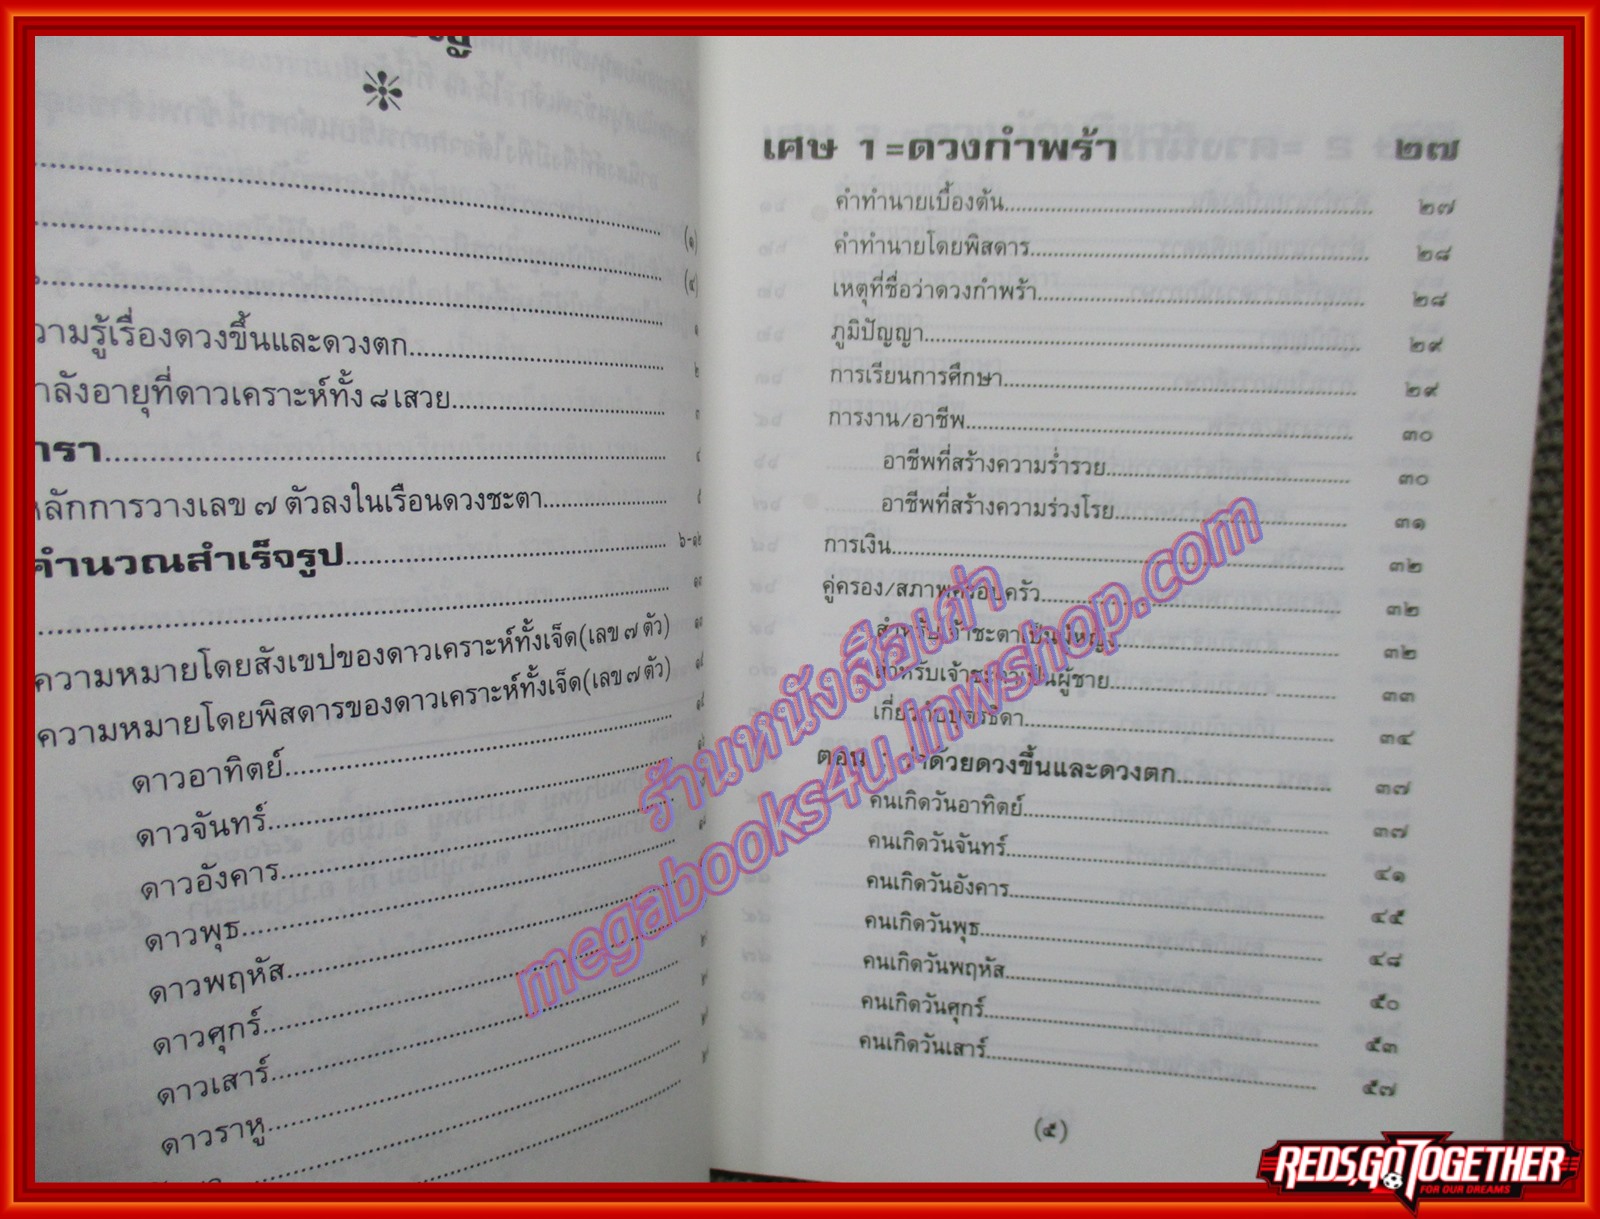 (๑)
(๔)
๑
ความรู้เรื่องดวงขึ้นและดวงตก ๒
กำลังอายุที่ดาวเคราะห์ทั้ง ๘ เสวย ๓
๔
หลักการวางเลข ๗ ตัวลงในเรือนดวงชะตา ๕
คำนวณสำเร็จรูป ๖-๑๖
ความหมายโดยสังเขปของดาวเคราะห์ทั้งเจ็ด(เลข ๗ ตัว)
ความหมายโดยพิสดารของดาวเคราะห์ทั้งเจ็ด(เลข ๗ ตัว)
ดาวอาทิตย์
ดาวจันทร์
ดาวอังคาร
ดาวพุธ
ดาวพฤหัส
ดาวศุกร์
ดาวเสาร์
ดาวราหู
เศษ 1=ดวงกำพร้า ๒๗
คำทำนายเบื้องต้น ๒๗
คำทำนายโดยพิสดาร ๒๘
เหตุที่ชื่อว่าดวงกำพร้า ๒๘
ภูมิปัญญา ๒๙
การเรียนการศึกษา ๒๙
การงาน/อาชีพ ๓๐
อาชีพที่สร้างความร่ำรวย ๓๐
อาชีพที่สร้างความร่วงโรย ๓๑
การเงิน ๓๒
คู่ครอง/สภาพครอบครัว ๓๒
สำหรับเจ้าชะตาเป็นผู้หญิง ๓๒
สำหรับเจ้าชะตาเป็นผู้ชาย ๓๓
เกี่ยวกับบุตรธิดา ๓๔
ตอน 1 ว่าด้วยดวงขึ้นและดวงตก ๓๗
คนเกิดวันอาทิตย์ ๓๗
คนเกิดวันจันทร์ ๔๑
คนเกิดวันอังคาร ๔๕
คนเกิดวันพุธ ๔๘
คนเกิดวันพฤหัส ๕๐
คนเกิดวันศุกร์ ๕๓
คนเกิดวันเสาร์ ๕๗
(๕)
ร้านหนังสือเก่า
megabooks4u.lnwshop.com
REDS,GO TOGETHER
FOR OUR DREAMS